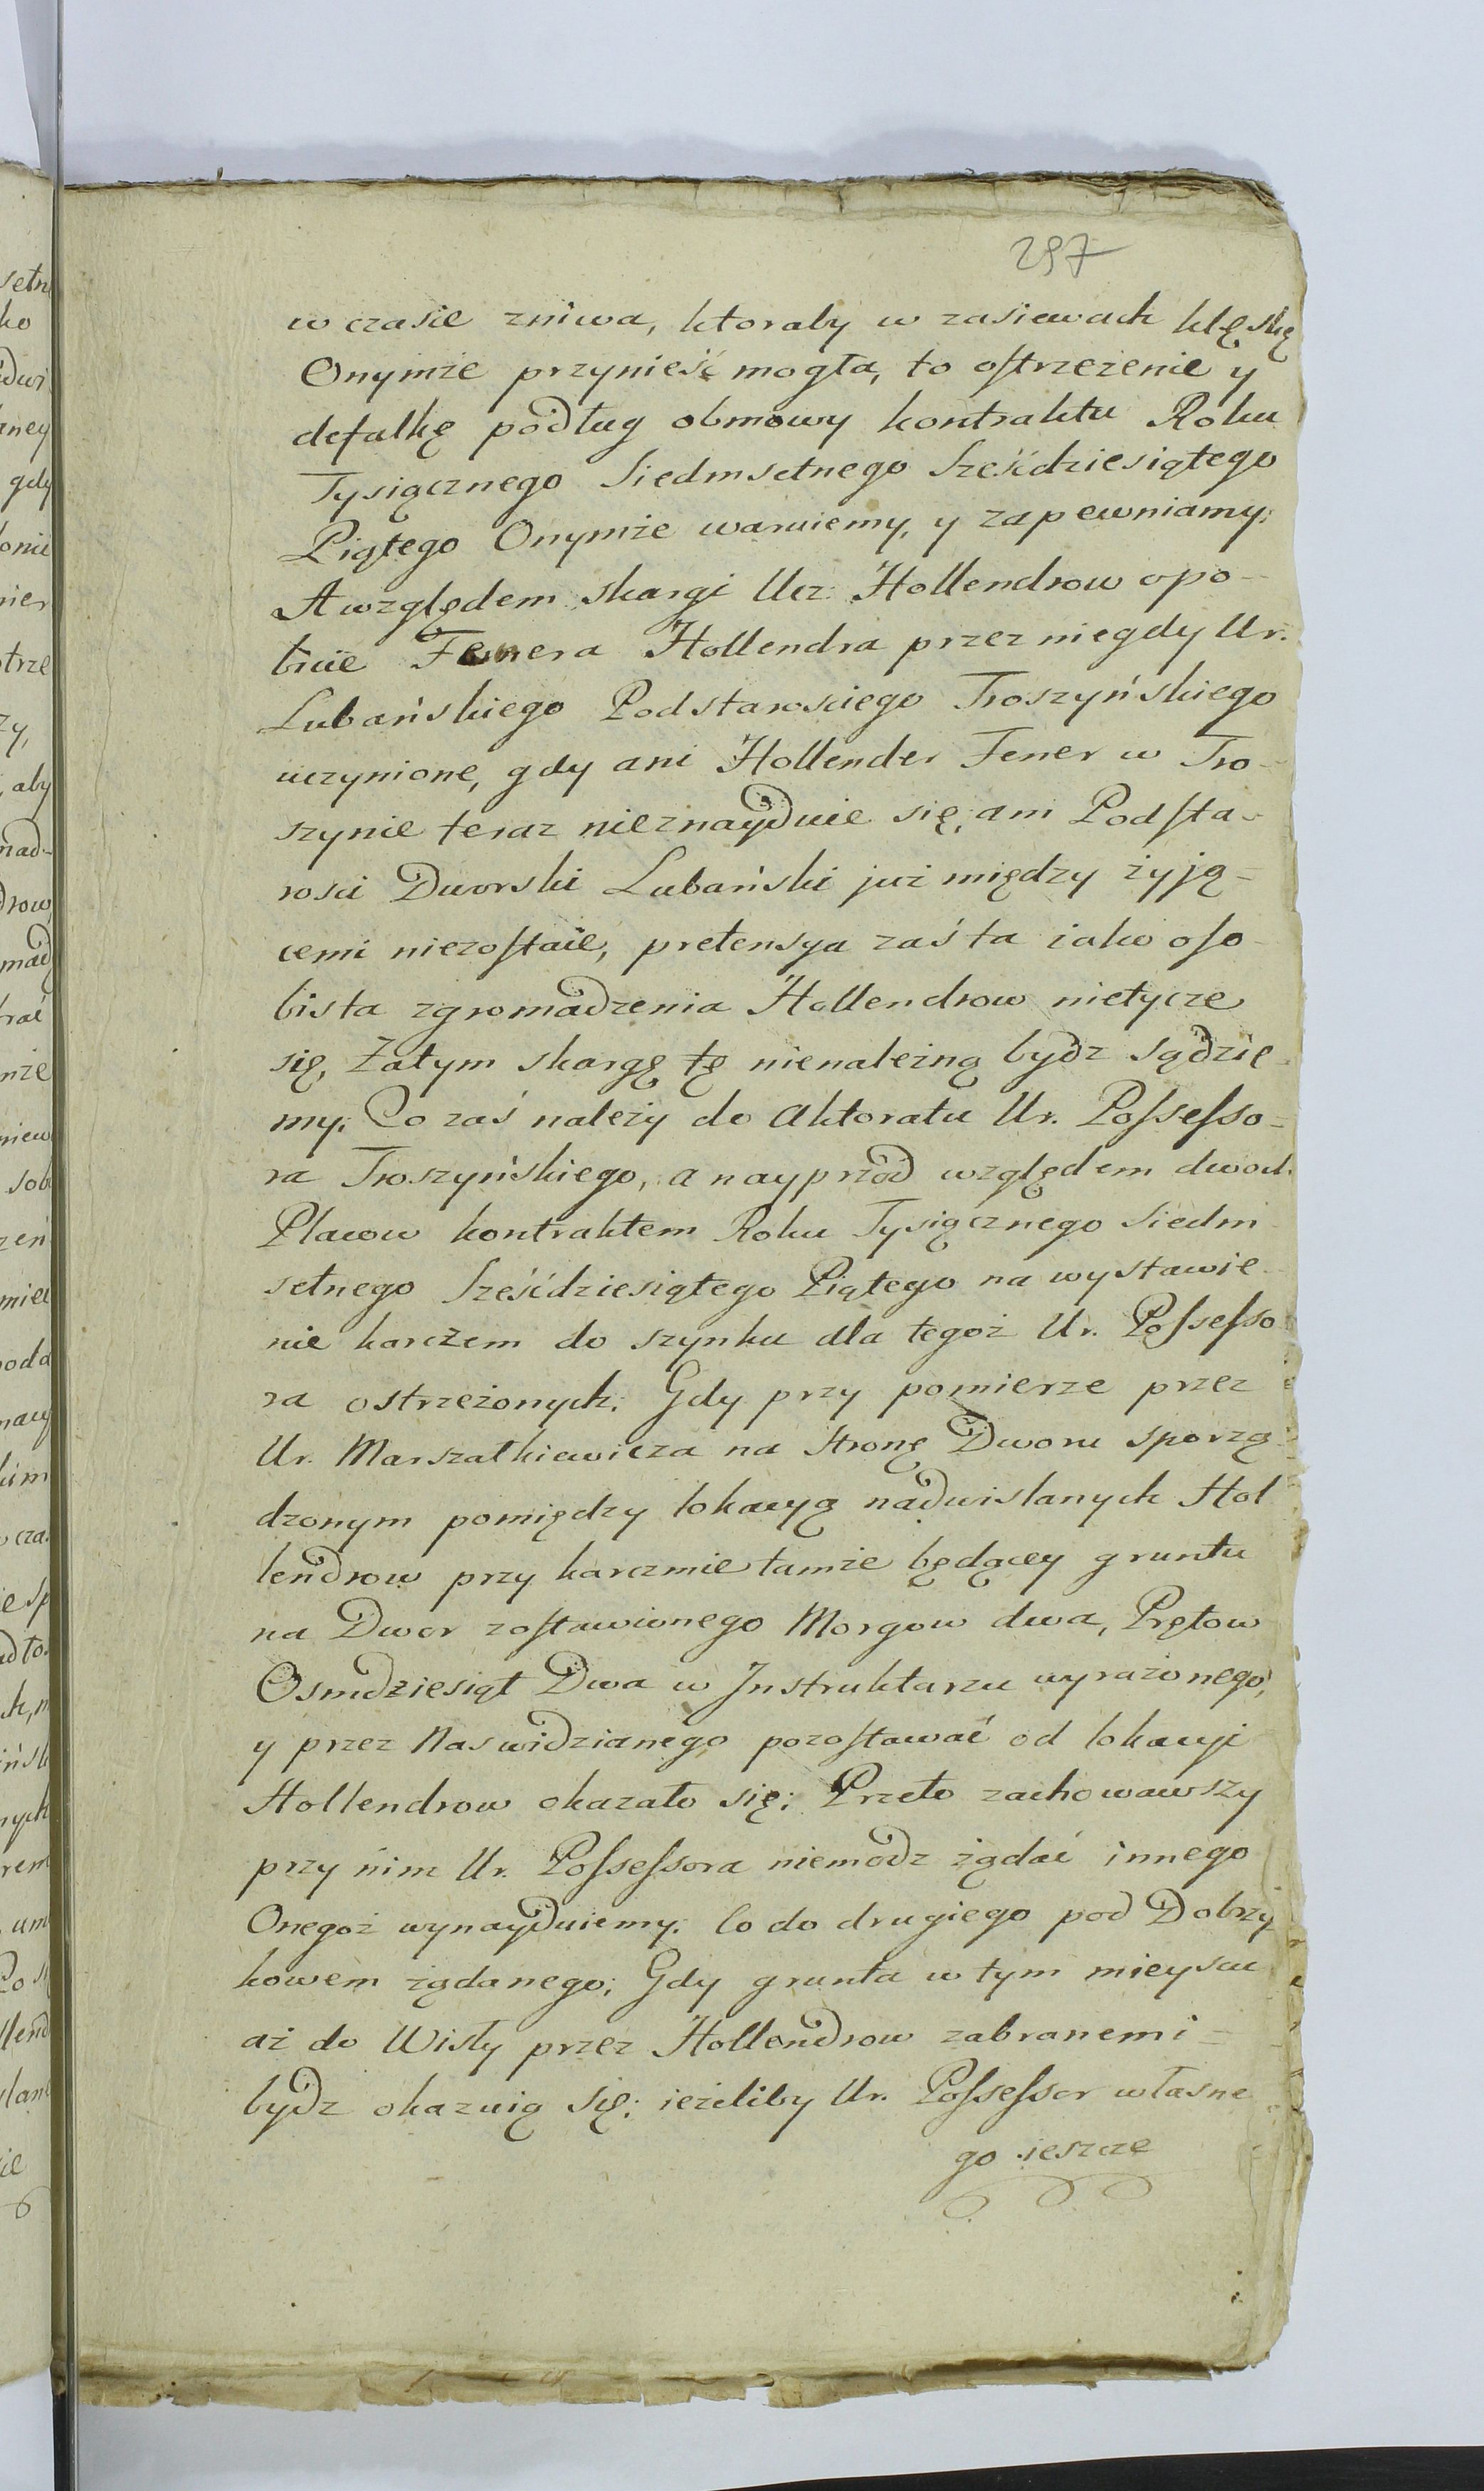 297
w czasie zniwa, ktoraby w zasiewach klęskę
Onymże przynieść mogła, to ostrzeżenie y
defalkę podług obmowy kontraktu Roku
Tysiącznego Siedmsetnego Sześćdziesiątego
Piątego Onymże waruiemy, y zapewniamy;
A względem skargi Ucz: Hollendrow o po-
bicie Fenera Hollendra przez niegdy Ur.
Lubańskiego Podstarosciego Troszyńskiego
uczynione, gdy ani Hollender Fener w Tro-
szynie teraz nieznayduie się, ani Podsta-
rosci Dworski Lubański już między żyją-
cemi niezostaie, pretensya zaś ta iako oso-
bista zgromadzenia Hollendrow nietycze
się, Zatym skargę tę nienależną bydz sądzie-
my; Co zaś należy do Aktoratu Ur. Possesso-
ra Troszyńskiego, a nayprzod względem dwoch
Placow kontraktem Roku Tysiącznego Siedm
setnego Sześćdziesiątego Piątego na wystawie-
nie karczem do szynku dla tegoż Ur. Possesso
ra ostrzeżonych; Gdy przy pomierze przez
Ur. Marszałkiewicza na stronę Dworu sporzą
dzonym pomiędzy lokacyą nadwislanych Hol
lendrow przy karczmie tamże będącey gruntu
na Dwor zostawionego Morgow dwa, Prętow
Osmdziesiąt Dwa w Instruktarzu wyrażonego,
y przez Nas widzianego pozostawać od lokacyi
Hollendrow okazało się; Przeto zachowawszy
przy nim Ur. Possessora niemodz żądać innego
Onegoż wynayduiemy. Co do drugiego pod Dobrzy
kowem żądanego; Gdy grunta w tym mieyscu
aż do Wisły przez Hollendrow zabranemi
bydz okazuią się; ieżeliby Ur. Possessor własne
go ieszcze